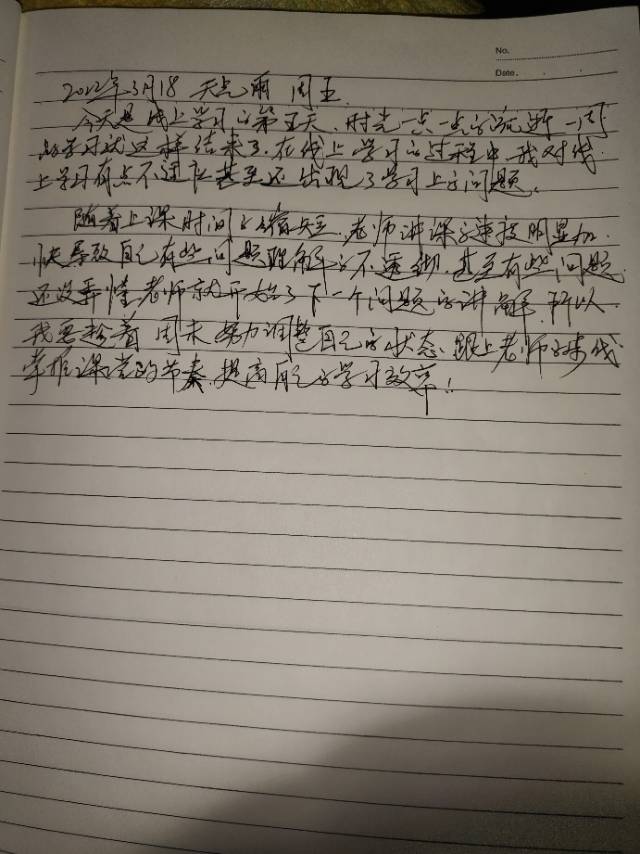 No.
Date.
2022年3月18 天气雨 周五
今天是线上学习的第五天,时光一点一点的流逝一周
的学习就这样结束了,在线上学习的过程中我对线
上学习有点不适应甚至还出现了学习上的问题。
随着上课时间的缩短,老师讲课的速度明显加
快导致自己有些问题理解的不透彻,甚至有些问题
还没弄懂老师就开始了下一个问题的讲解,所以
我要趁着周末努力调整自己的状态、跟上老师的步伐
掌握课堂的节奏,提高自己的学习效率!